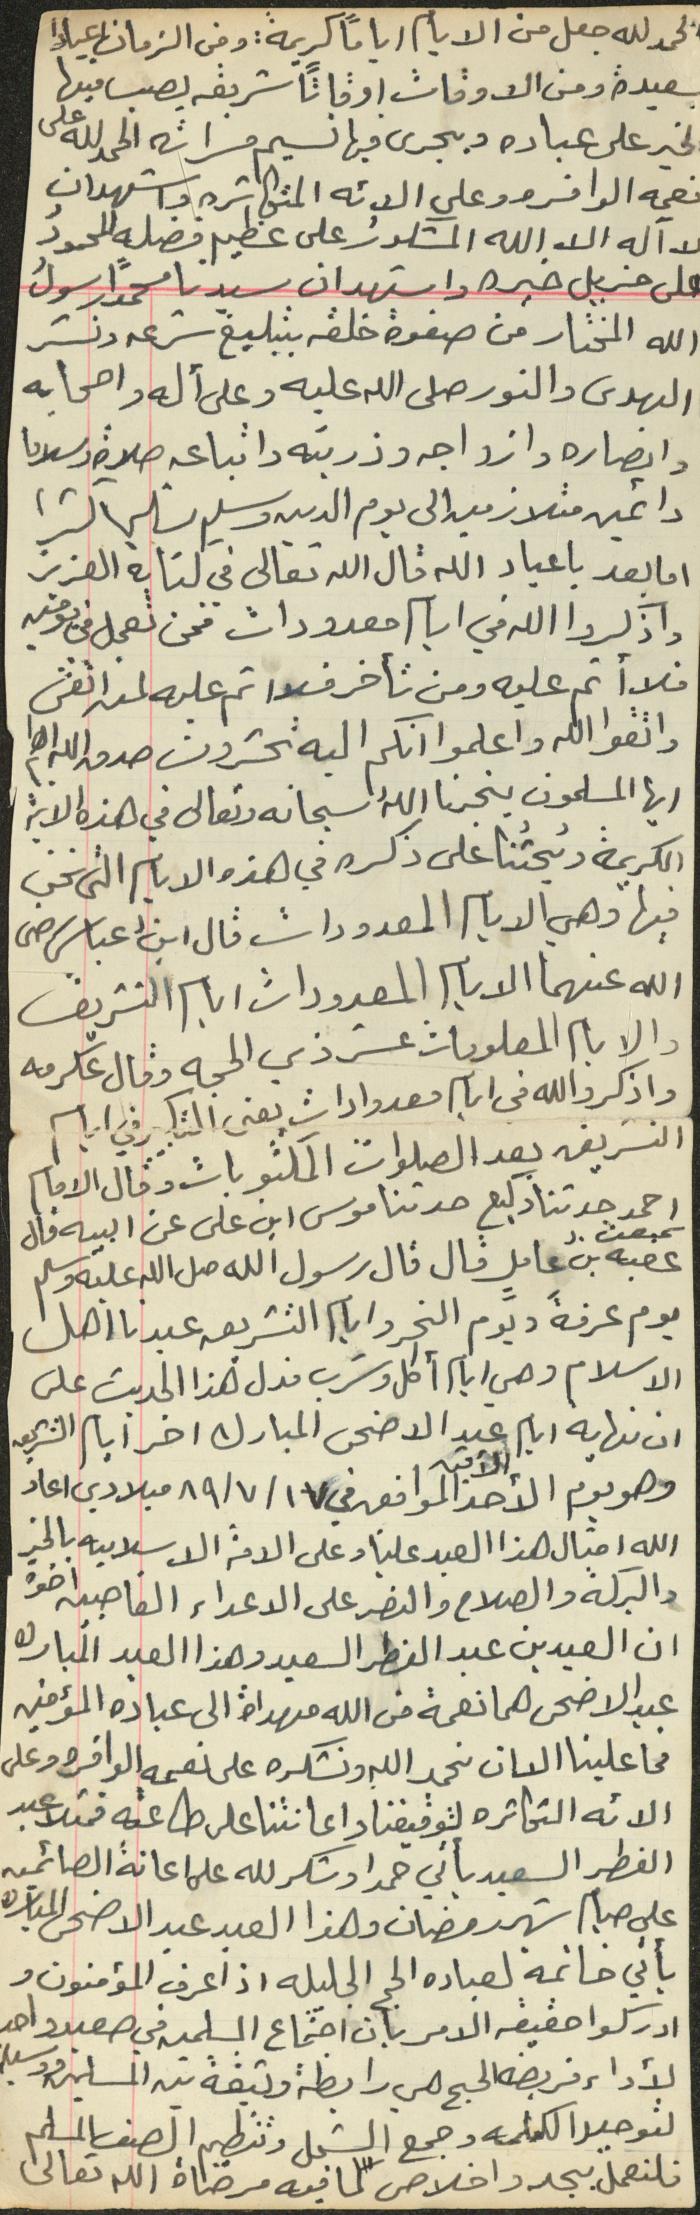 الحمد لله جعل من الايام اياماً كريمة: ومن الزمان اعياداً
سعيدة ومن الاوقات اوقاتاً شريفه يصب فيها
الخير على عباده ويجرى فيها نسيم مراثه الحمد لله على
نعمه الوافره وعلى الائه المتكاثره واشهدان
لا آله الا الله المشكورُ على عظيم فضله المحمودُ
على جزيل خيره واشهدان سيدنا محمداً رسولُ
الله المختار من صفوة خلقه بتبليغ شرعه ونشر
الهدى والنور صلى الله عليه وعلى أله واصحابه
وانصاره وازواجه وذريته واتباعه صلاة وسلاما
دائمين متلازمين الى يوم الدين وسلم تسليما كثيرا
اما بعد يا عباد الله قال الله تعالى في كتابه العزيز
واذكروا الله في ايام معدودات فمن تعجل في يومين
فلا أثم عليه ومن تأخر فلا اثم عليه لمن اتقى
واتقوا الله واعلموا انكم اليه تحشرون صدق الله العظيم
ايها المسلمون يخبرنا اللهُ سبحانه وتعالى في هذه الاية
الكريمة ويُحثُنا على ذكره في هذه الايام التي نحن
فيها وهي الايام المعدودات قال ابنُ عباس رضى
الله عنهما الايام المعدودات ايام التشريق
والايام المعلومات عشر ذي الحجه وقال عكرمه
واذكروالله فى ايام معدوادات يعنى التكبير في ايام
التشريق بعد الصلوات المكتوبات وقال الامام
احمد حدثنا وكيع حدثنا موسى ابن على عن ابيه قال سمعت
عقبه بن عامر قال قال رسول الله صل الله عليه وسلم
يوم عرفةَ ويَوم النحر وايام التشريق عيدنا اهل
الاسلام وهي ايام أكل وشرب فدل هذا الحديث على
ان نهايه ايام عيد الاضحى المبارك اخر ايام التشريق
وهو يوم الأحد الآتيه الموافق في ١٧/٧/٨٩ ميلادي اعاد
الله امثال هذا العيد علينا وعلى الامة الاسلاميه بالخير
والبركة والصلاح والنصر على الاعداء الغاصبين اخوة
ان العيدين عيد الفطر السعيد وهذا العيد المبارك
عيد الاضحى هما نعمة من الله مهداة الى عباده المؤمنين
فما علينا الا ان نحمد الله ونشكره على نعمه الوافره وعلى
الائه التكاثره لتوفيقنا واعانتنا على طاعته فمثلا عيد
الفطر السعيد يأتي حمدا وشكر لله على اعانةَ الصائمين
على صيام شهر رمضان وهذا العيد عيد الاضحى المبارك
يأتي خاتمة لعباده الحج الجليله اذا عرف المؤمنون و
ادركوا حقيقه الامر بأن اجتماع المسلمين في صعيد واحد
لأداء فريضه الحج هي رابطة وثيقة بين المسلمين ووسيلة
لتوحيد الكلمه وجمع الشمل وتنظيم الصف المسلم
فلنعمل بجد واخلاص لما فيه مرضاة الله تعالى